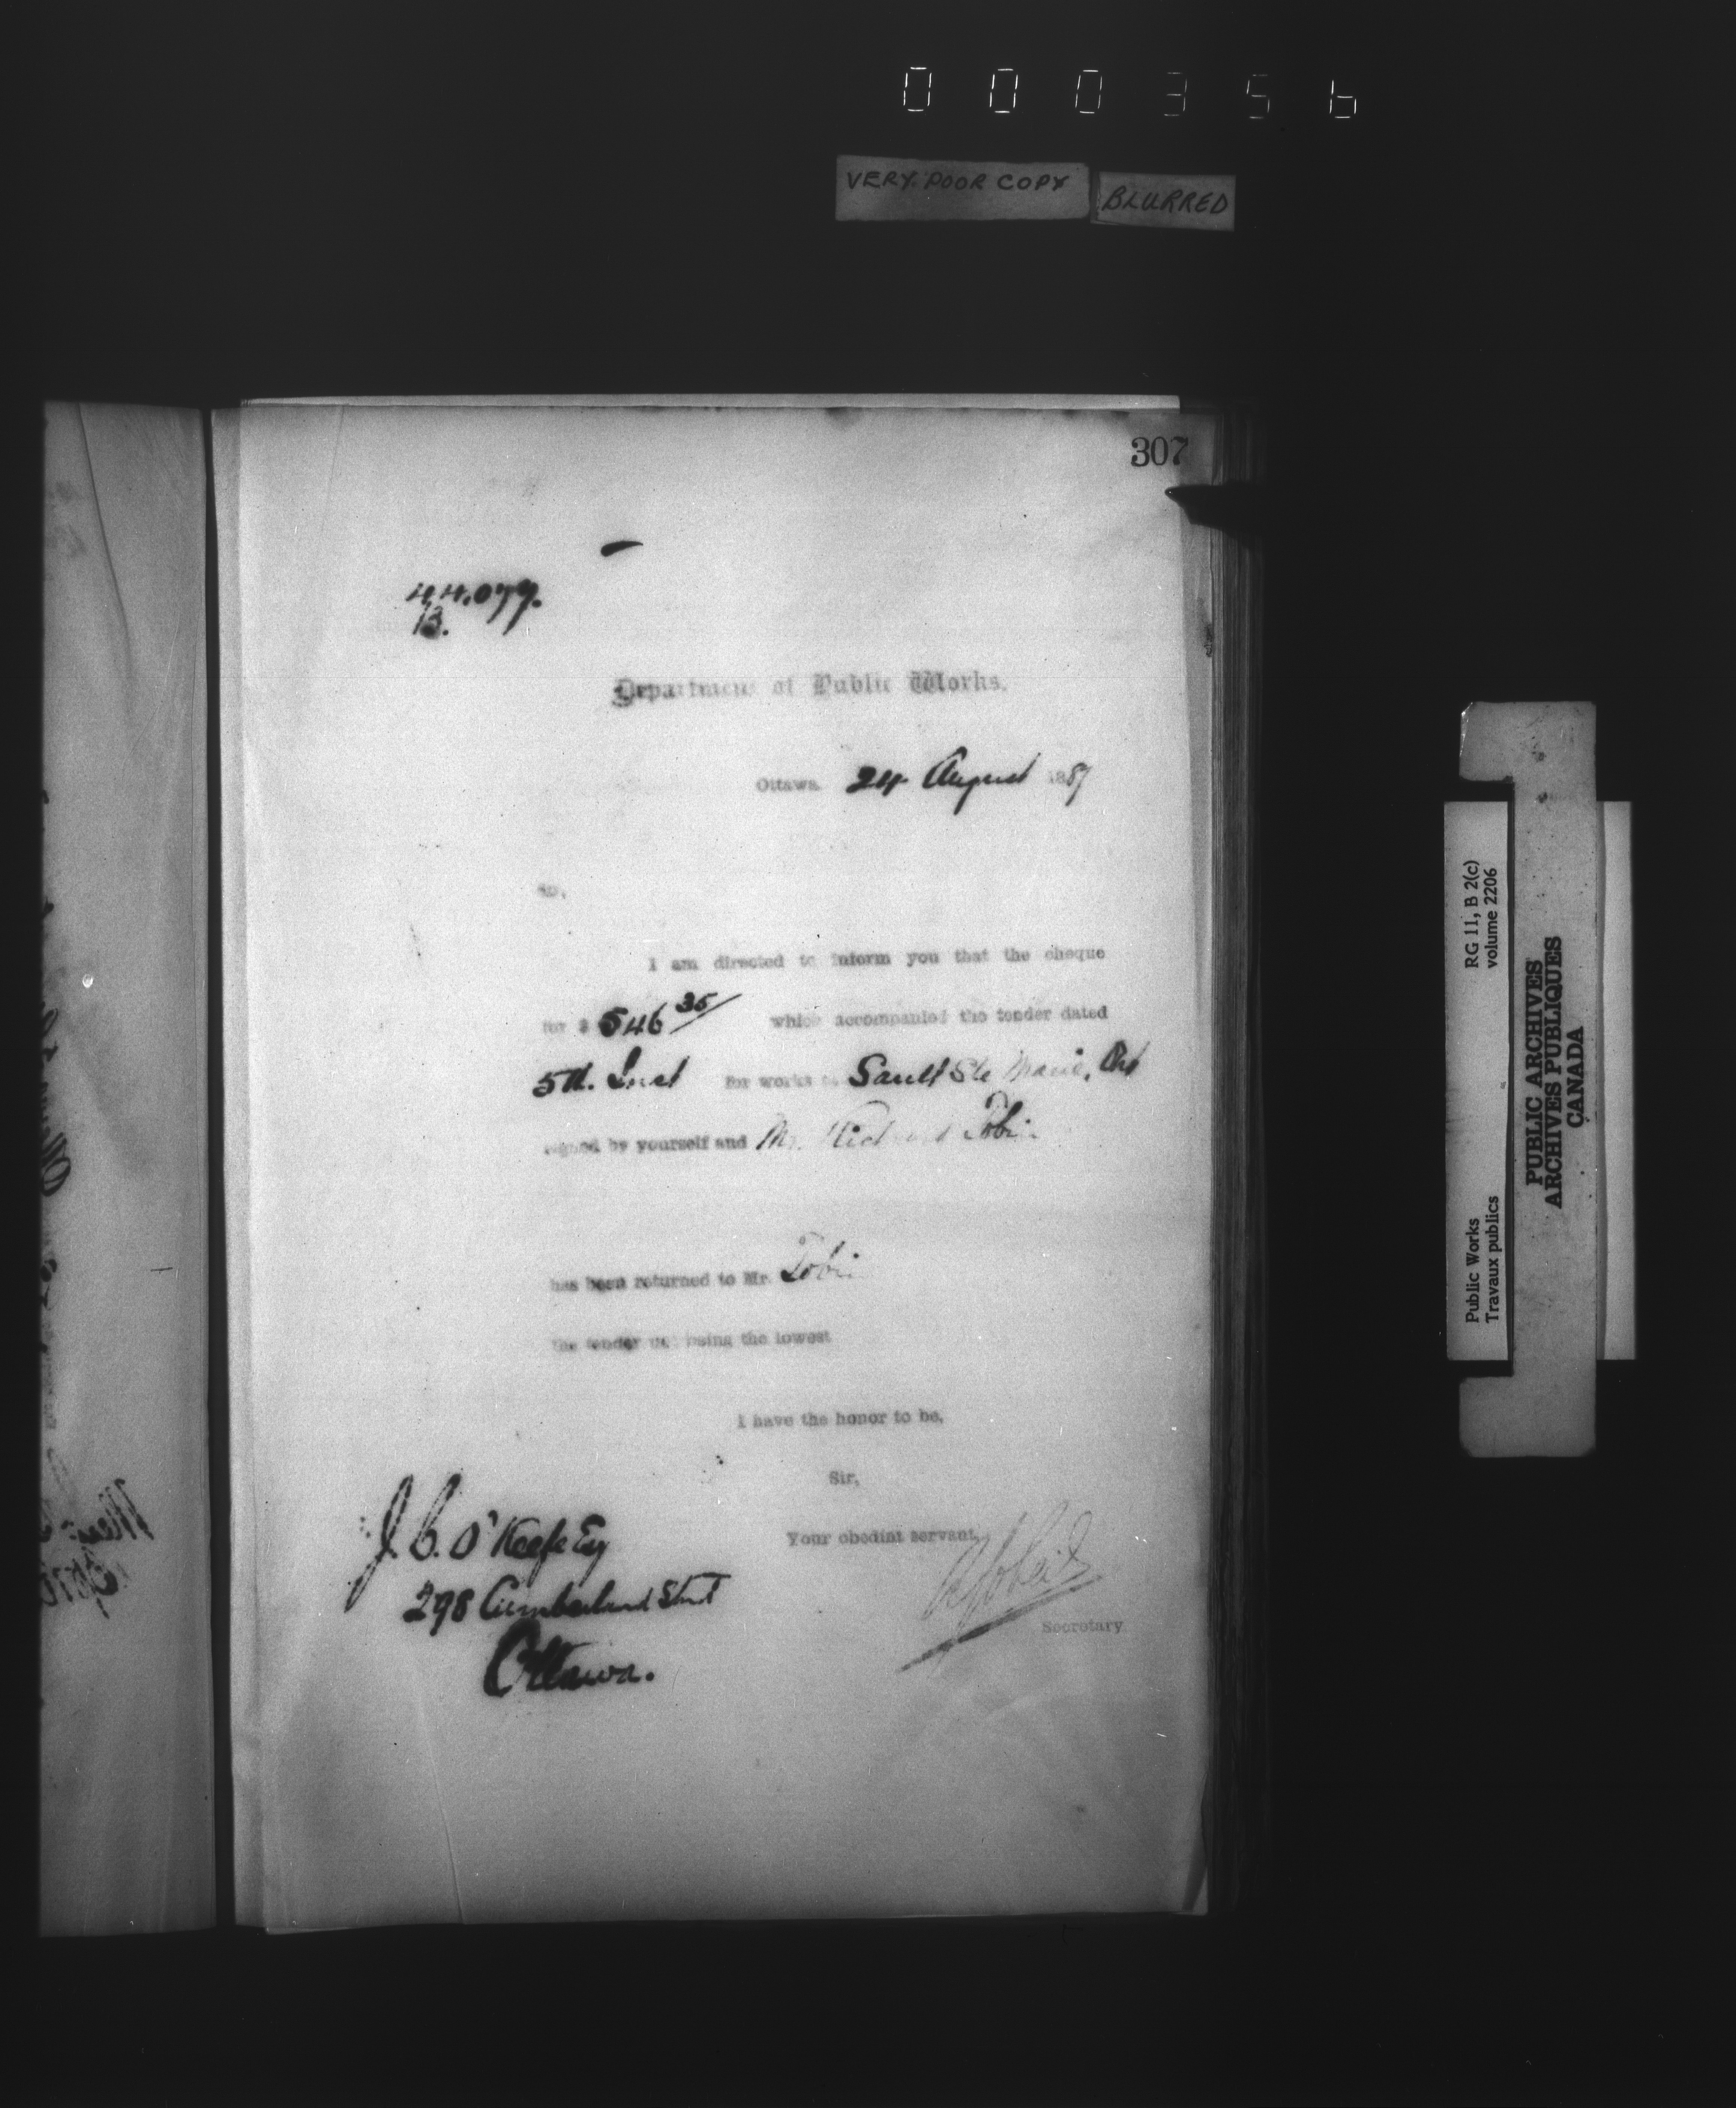 000356
VERY POOR COPY
BLURRED
307
44.079.
B.
Department of Public Works.
Ottawa 24 August 1887
Sir,
I am directed to inform you that the cheque
for $ 546 35/ which accompanied the tender dated
5th. Inst for works Sault Ste Marie, Ont
signed by yourself and Mr. Richard Tobin
has been returned to Mr. Tobin
The tender not being the lowest
I have the honor to be,
Sir,
Your obedint servant,
Secretary
J. C. O'Keefe Esq
298 Cumberland Street
Ottawa.
Public Works
Travaux publics
RG 11, B 2(c)
volume 2206
PUBLIC ARCHIVES
ARCHIVES PUBLIQUES
CANADA